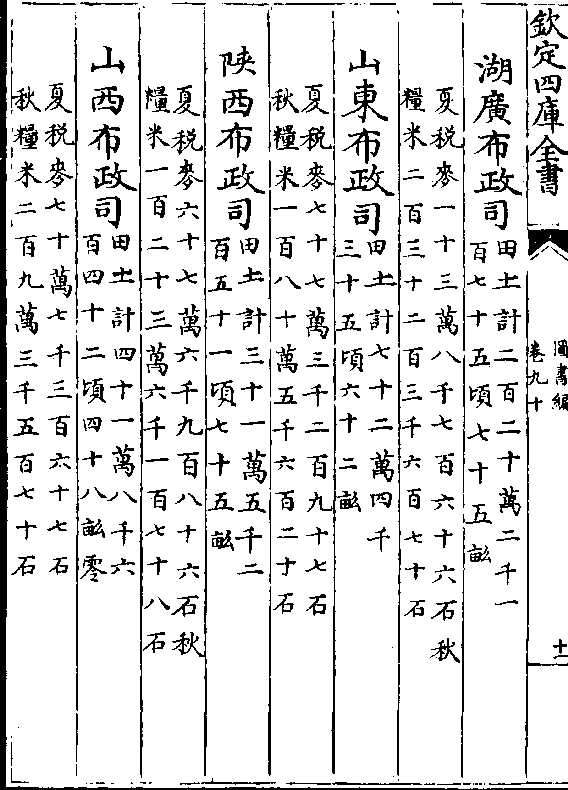 欽定四庫全書
圖書編
卷九十
十二
湖廣布政司
田土計二百二十萬二千一
百七十五頃七十五畝
夏税麥一十三萬八千七百六十六石秋
糧米二百三十二百三千六百七十石
山東布政司
田土計七十二萬四千
三十五頃六十二畝
夏税麥七十七萬三千二百九十七石
秋糧米一百八十萬五千六百二十石
陜西布政司
田土計三十一萬五千二
百五十一頃七十五畝
夏税麥六十七萬六千九百八十六石秋
糧米一百二十三萬六千一百七十八石
山西布政司
田土計四十一萬八千六
百四十二頃四十八畝零
夏税麥七十萬七千三百六十七石
秋糧米二百九萬三千五百七十石